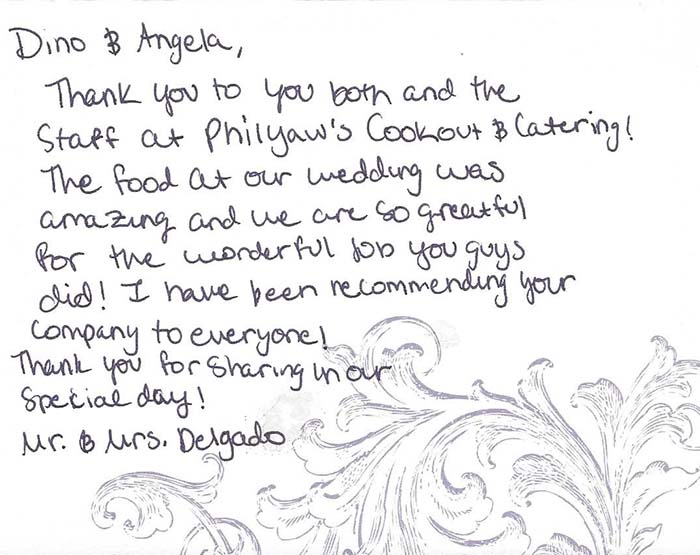 Dino & Angela,
Thank you to you both and the
Staff at Philyaw's Cookout & Catering!
The food at our wedding was
amazing and we are so greatful
for the wonderful job you guys
did! I have been recommending your
company to everyone!
Thank you for sharing in our
special day!
Mr. & Mrs. Delgado